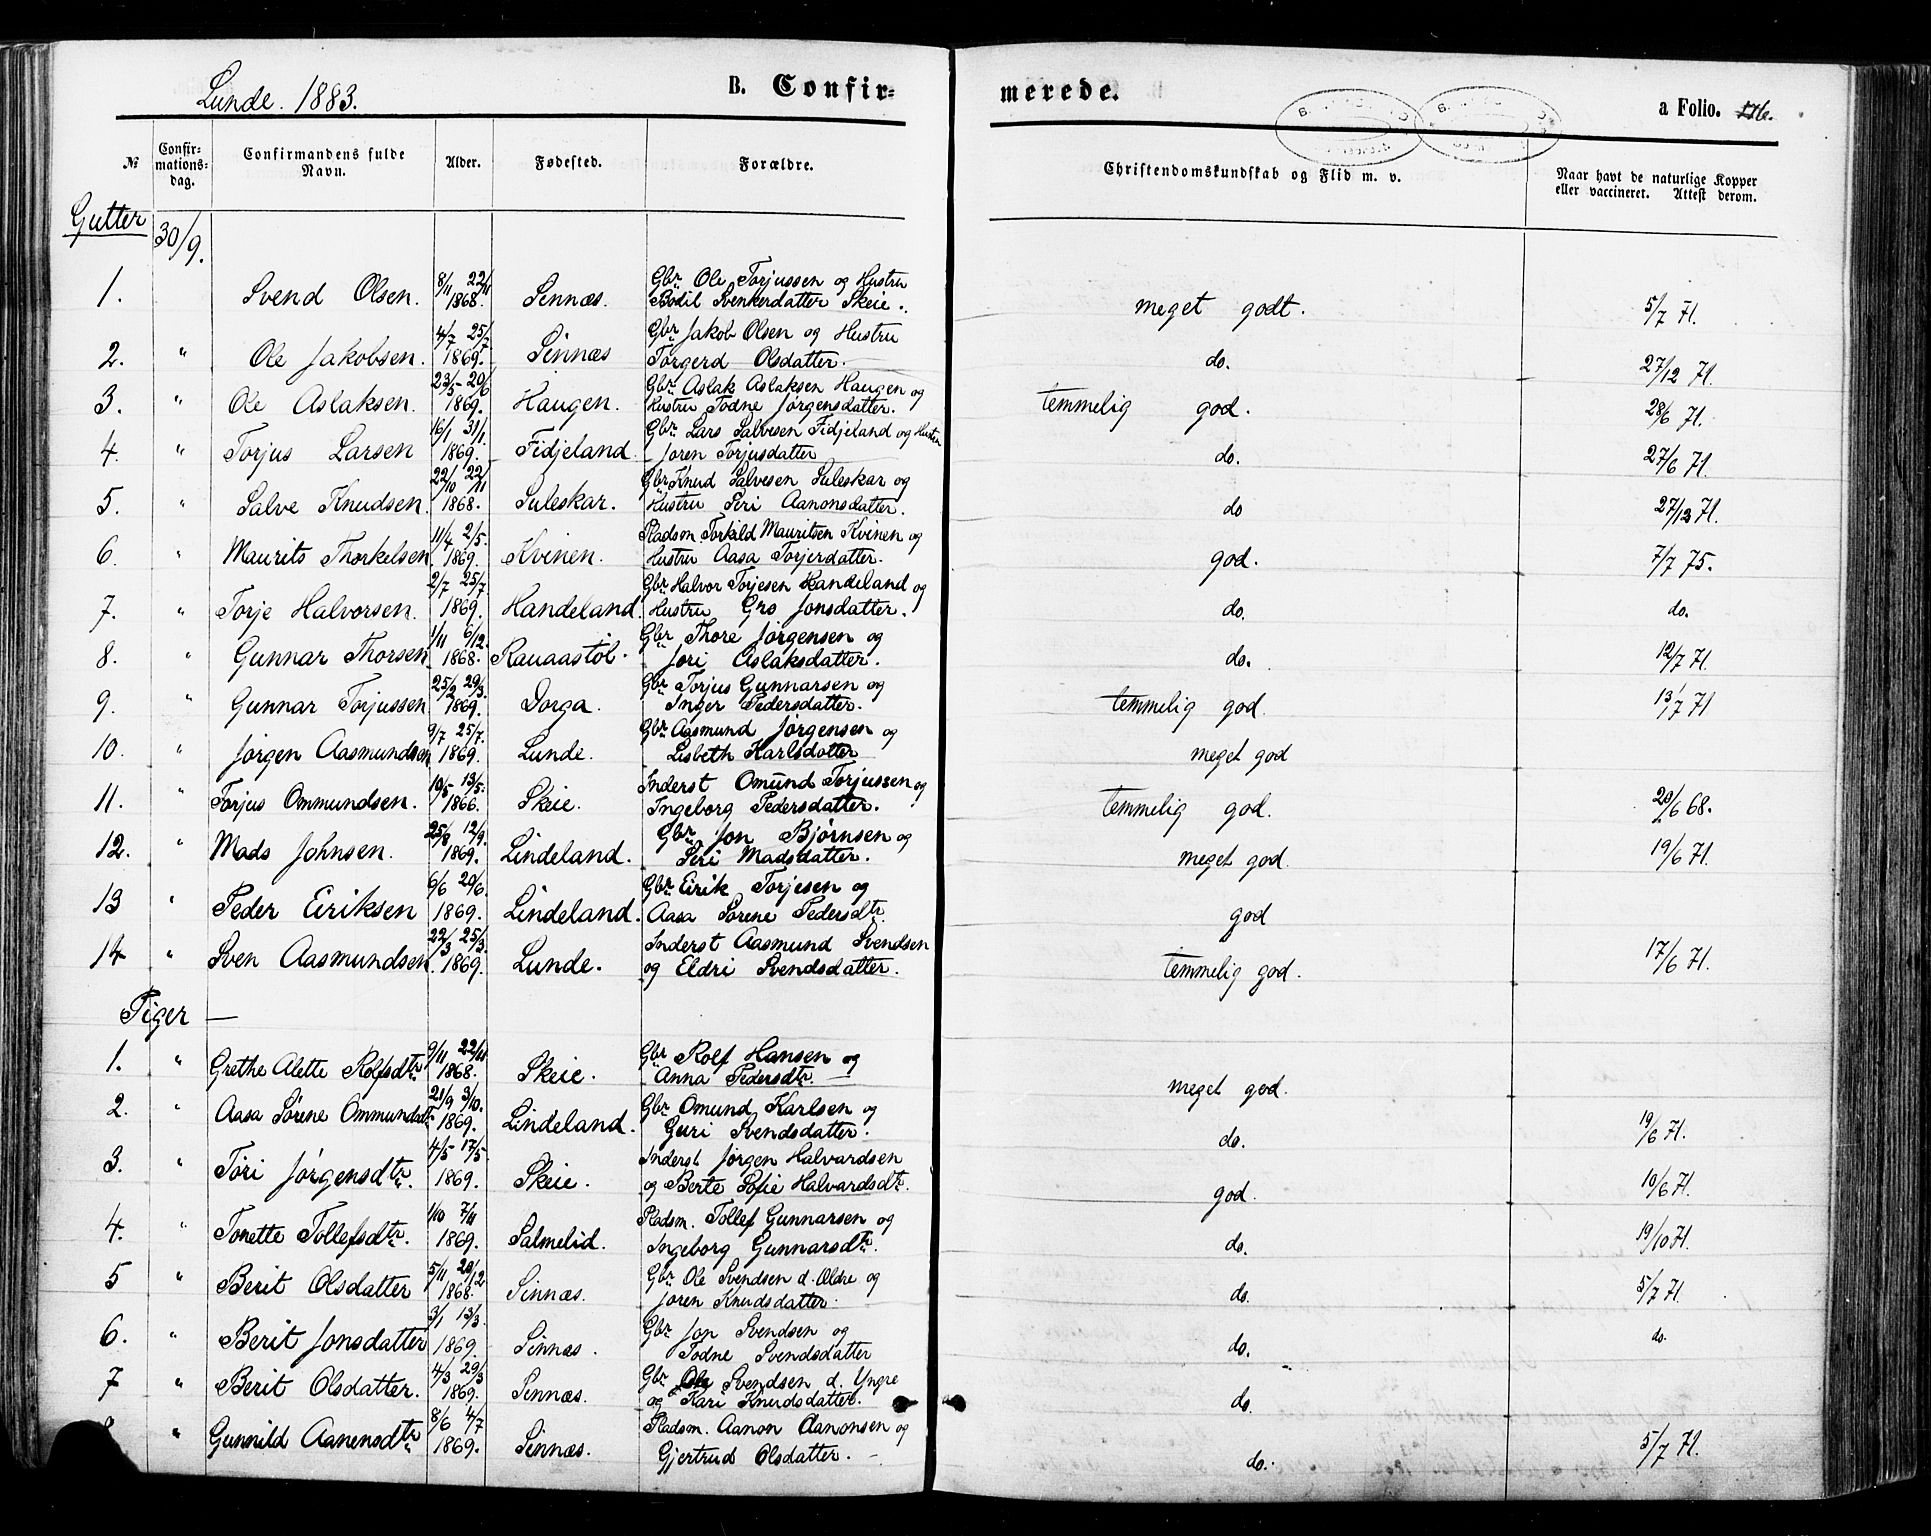 Lunde. 1883.
B. Confir-
merede.
a Folio. 176.
№
Confir-
mations-
dag.
Confirmandens fulde
Navn.
Alder.
Fødested.
Forældre.
Christendomskundskab og Flid m. v.
Naar havt de naturlige Kopper
eller vaccineret. Attest derom.
Gutter 30/9.
1. Svend Olsen. 8/11 22/11 1868. Sinnæs. Gbr. Ole Torjussen og Hustru
Bodil Svenkerdatter Skeie. meget godt. 5/7 71.
2. " Ole Jakobsen. 4/7 25/7 1869. Sinnæs Gbr. Jakob Olsen og Hustru
Torgerd Olsdatter. do. 27/12 71.
3. " Ole Aslaksen. 23/5 - 20/6 1869. Haugen. Gbr. Aslak Aslaksen Haugen og
Hustru Todne Jørgensdatter. temmelig god. 28/6 71.
4. " Torjus Larsen 16/1 31/1. 1869. Fidjeland Gbr. Lars Salvesen Fidjeland og Hustru
Joren Torjusdatter do. 27/6 71.
5. " Salve Knudsen. 22/10 22/11 1868. Suleskar. Gbr. Knud Salvesen Suleskar og
Hustru Siri Aanonsdatter. do 27/12 71.
6. " Maurits Thorkelsen. 11/4 2/5. 1869. Kvinen. Pladsm Torkild Mauritsen Kvinen og
Hustru Aasa Torjerdatter. god. 7/7 75.
7. " Torje Halvorsen. 2/7 25/7 1869. Handeland. Gbr. Halvor Torjesen Handeland og
Hustru Gro Jonsdatter. do. do.
8. " Gunnar Thorsen 1/11 6/12. 1868. Rauaastøl. Gbr Thore Jörgensen og
Jori Aslaksdatter. do. 12/7 71.
9. " Gunnar Torjussen 25/2 29/3. 1869. Dorga. Gbr Torjus Gunnarsen og
Inger Pedersdatter. temmelig god. 13/7 71
10. " Jørgen Aasmundsen 9/7 25/7. 1869. Lunde. Gbr. Aasmund Jørgensen og
Lisbeth Karlsdatter meget god
11. " Torjus Ommundsen. 10/5 - 13/5. 1866. Skeie. Inderst Omund Torjussen og
Ingeborg Pedersdatter. temmelig god. 20/6 68.
12. " Mads Johnsen. 25/8 12/9. 1869. Lindeland. Gbr. Jon Bjørnsen og
Siri Madsdatter. meget god. 19/6 71.
13 " Peder Eiriksen 6/6 20/6. 1869. Lindeland. Gbr. Eirik Torjesen og
Aasa Sorene Pedersdtr. god
14 " Sven Aasmundsen 22/3 25/3. 1869. Lunde. Inderst Aasmund Svendsen
og Eldri Svendsdatter. temmelig god. 17/6 71.
Piger —
1. " Grethe Alette Rolfsdtr 9/11 22/11 1868. Skeie. Gbr Rolf Hansen og
Anna Pedersdtr. meget god.
2. " Aasa Sørene Ommundsdtr 21/9 3/10. 1869. Lindeland. Gbr. Omund Karlsen og
Guri Svendsdatter. do. 19/6 71.
3. " Tori Jørgensdtr. 4/5 - 17/5. 1869. Skeie. Inderst Jørgen Halvardsen
og Berte Sofie Halvardsdtr. god. 10/6 71.
4. " Tonette Tollefsdtr. 1/10 7/11 1869. Salmelid. Pladsm. Tollef Gunnarsen og
Ingeborg Gunnarsdtr. do. 19/10 71.
5 " Berit Olsdatter 5/11 20/12 1868. Sinnæs. Gbr. Ole Svendsen d. Ældre og
Joren Knudsdatter. do. 5/7 71.
6. " Berit Jonsdatter 3/1 13/3. 1869. Sinnæs. Gbr. Jon Svendsen og
Todne Svendsdatter do. do.
7 " Berit Olsdatter. 4/3 29/3 1869. Sinnæs. Gbr. Ole Svendsen d. Yngre
og Kari Knudsdatter. do.
" Gunnild Aanensdtr 8/6 4/7 1869. Sinnæs. Pladsm. Aanon Aanonsen og
Gjertrud Olsdatter. — do. 5/7 71.